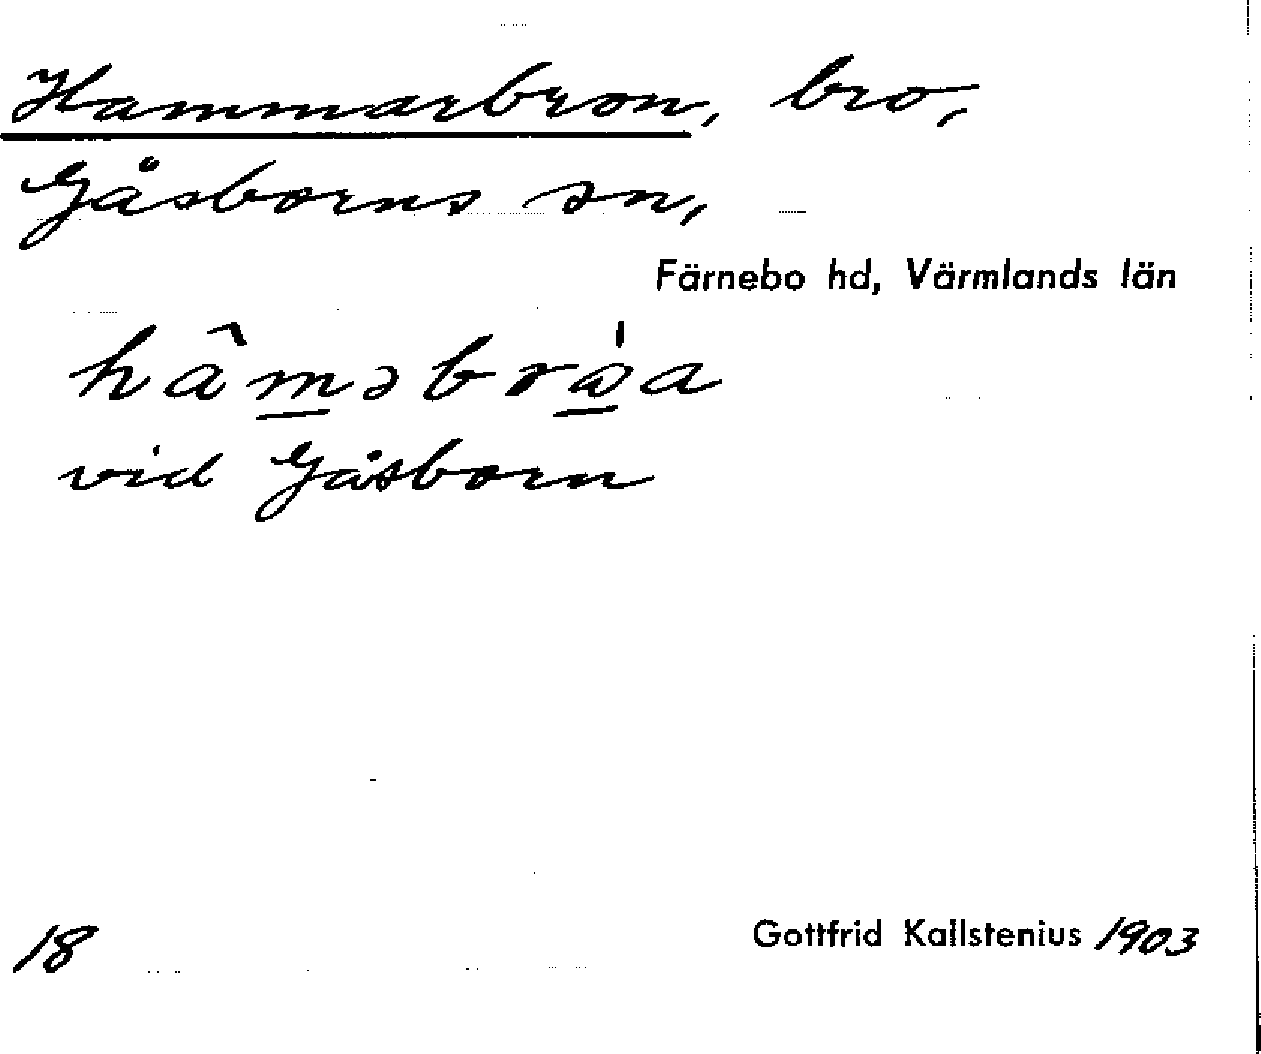 Hammarbron, bro,
Gåsborns sn,
Färnebo hd, Värmlands län
hâm̲əbrω̲̍a
vid Gåsborn
18
Gottfrid Kallstenius 1903